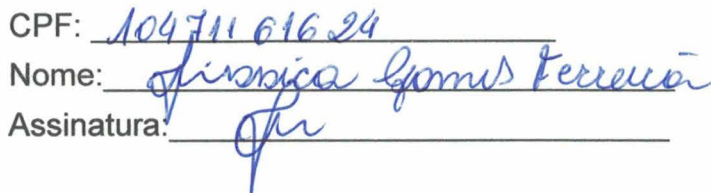 CPF: 104711 616 24
Nome: Jéssica Gomes Ferreira
Assinatura: